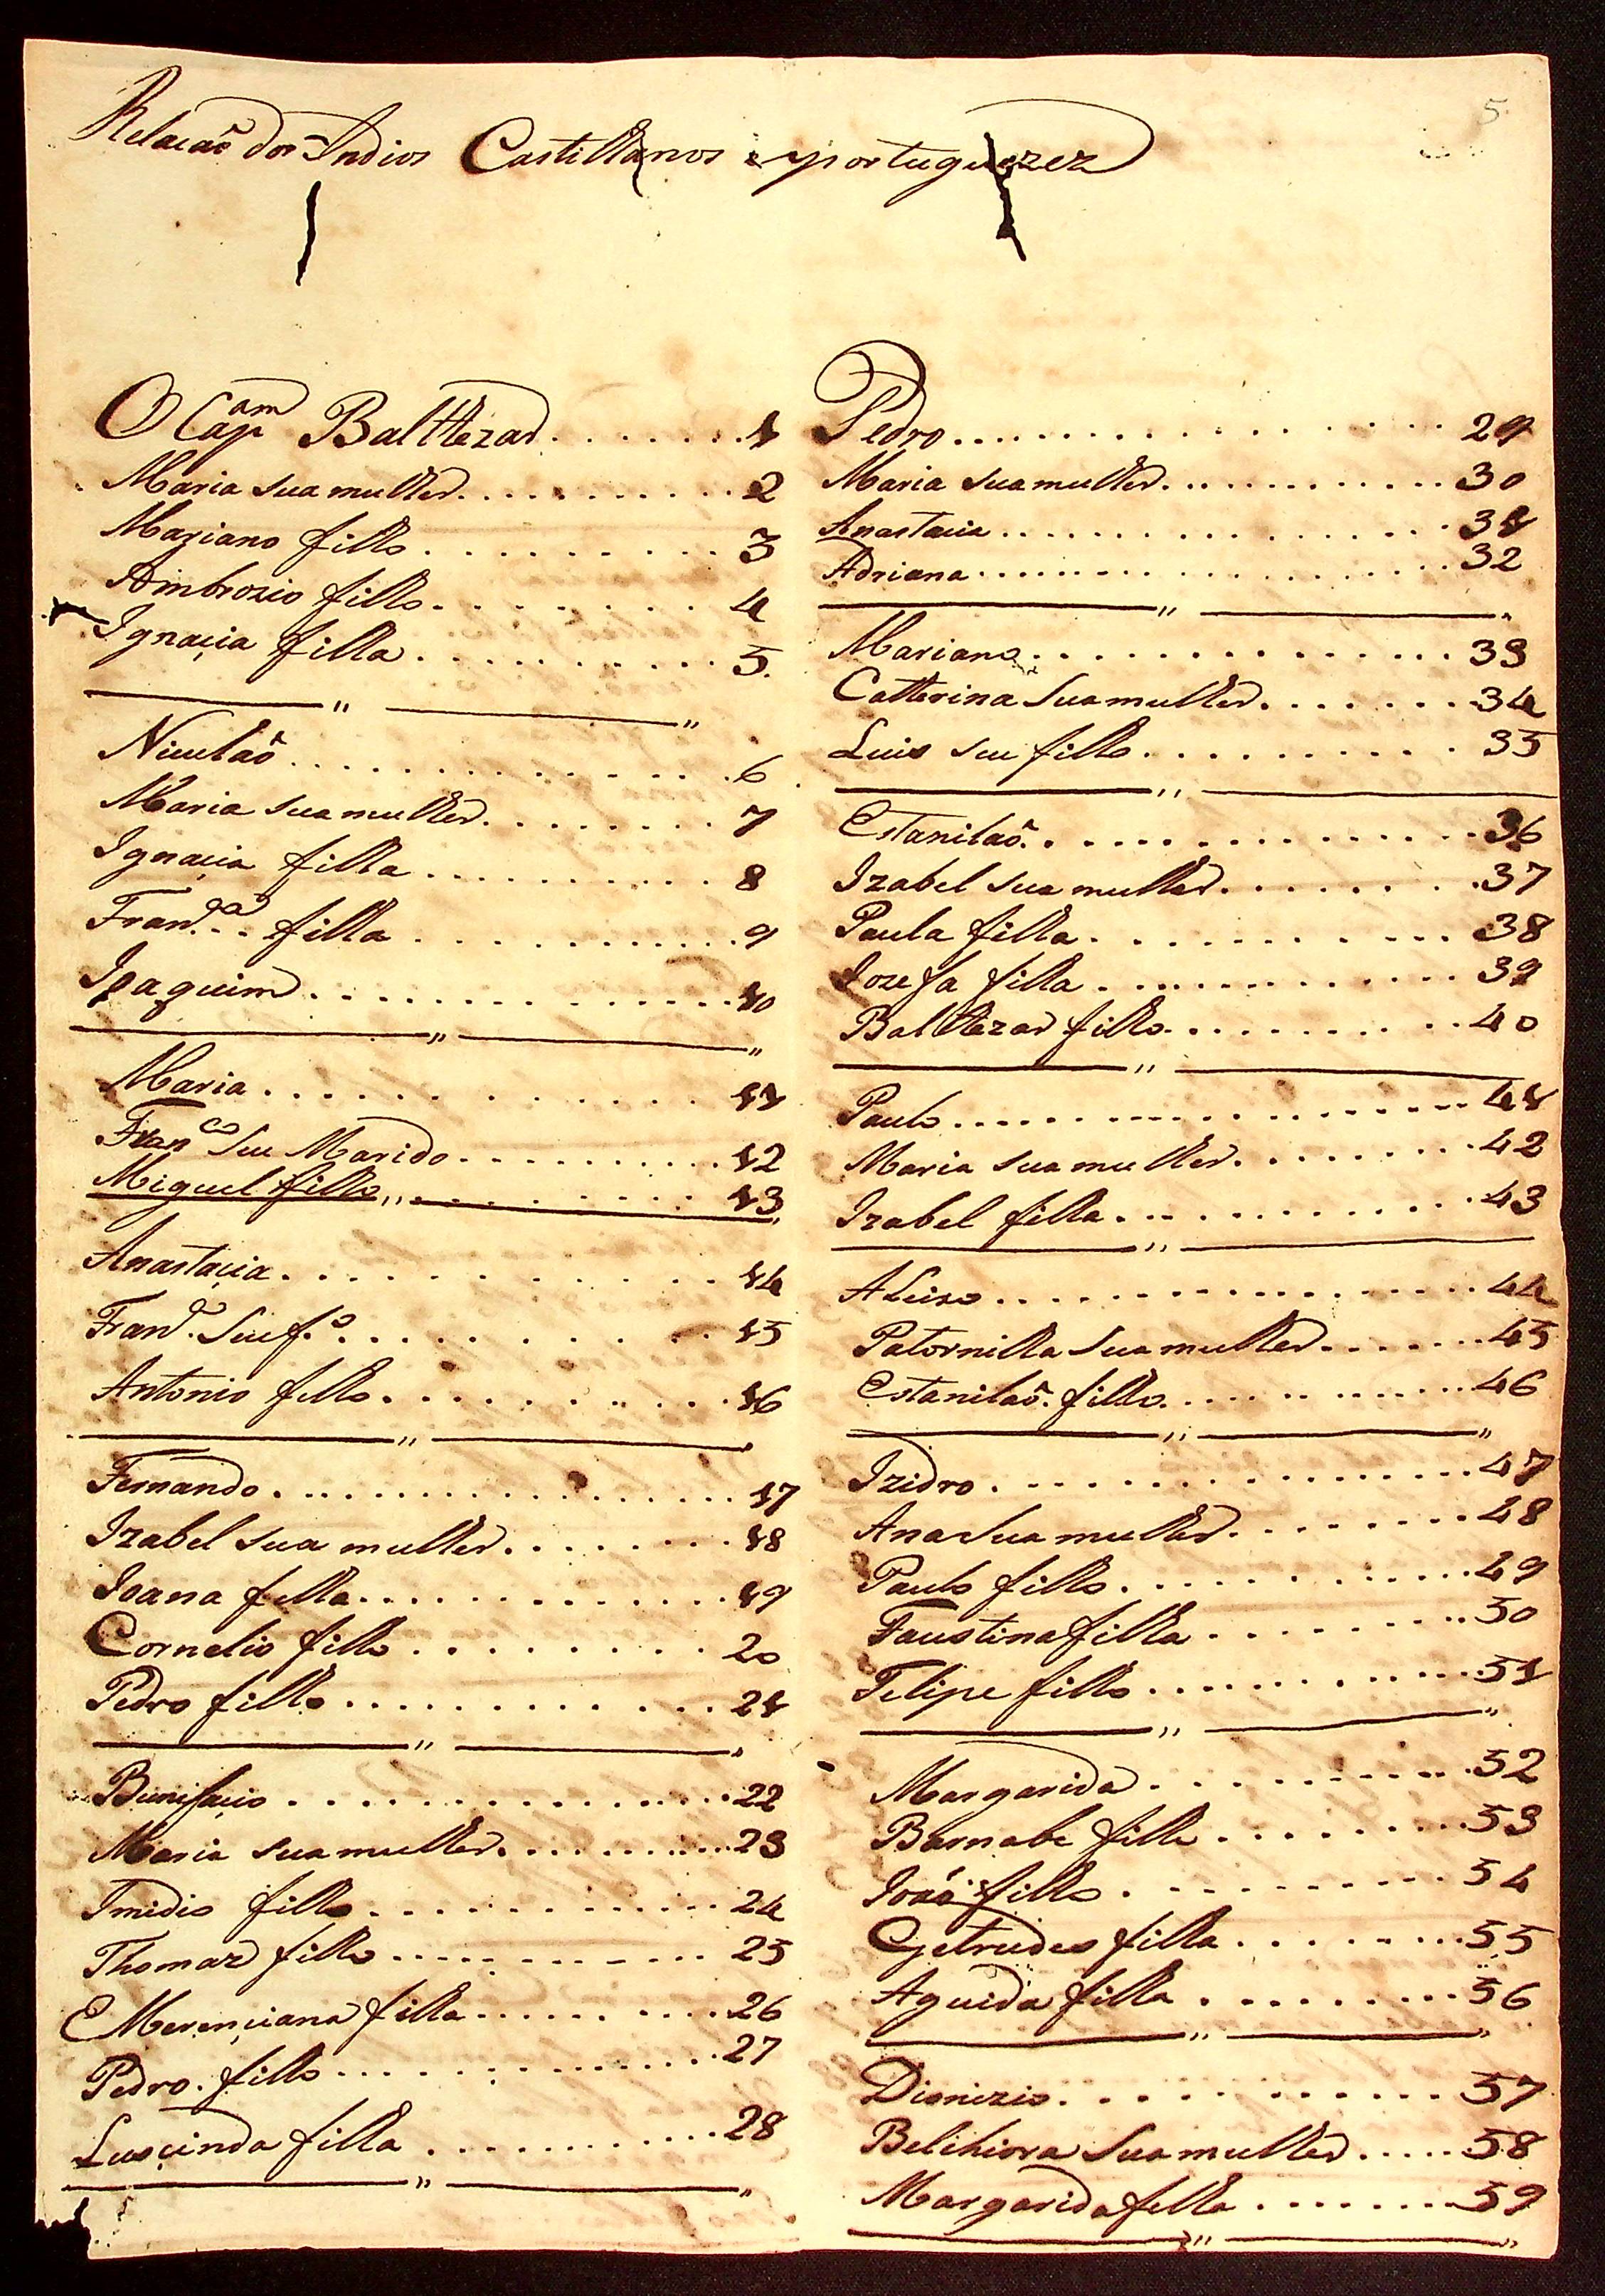 5
Relacaõ dos Indios Castilhanos e portuguezez
O Cap.am Balthezar ....... 1
Maria sua mulher .......... 2
Mariano filho .......... 3
Ambrozio filho ........ 4
Ignaçia filha .......... 5.
Niculaõ .............. 6
Maria sua mulher ........ 7
Ignaçia filha .......... 8
Fran.ca filha ........... 9
Joaquim .............. 10
Maria ............. 11
Franco seu Marido .......... 12
Miguel filho ......... 13
Anastaçia ............ 14
Fran.co seu f.o ........... 15
Antonio filho ........... 16
Fernando ................ 17
Izabel sua mulher ........ 18
Joana filha ............ 19
Cornelio filho ......... 20
Pedro filho ............ 21
Bunifaçio .............. 22
Maria sua mulher .......... 23
Imidio filho ............ 24
Thomaz filho .......... 25
EMerençiana filha ......... 26
Pedro filho .............. 27
Lusçinda filha ........... 28
Pedro ................. 29
Maria sua mulher ........... 30
Anastacia ............... 31
Adriana ................. 32
Mariano .............. 33
Catherina sua mulher ....... 34
Luis seu filho .......... 35
Estanilaõ ............... 36
Izabel sua mulher ........ 37
Paula filha .......... 38
Jozefa filha ............ 39
Balthezar filho .......... 40
Paulo ................. 41
Maria sua mulher ........ 42
Izabel filha ........... 43
Aleixo ................. 44
Patornilha sua mulher ...... 45
Estanilaõ filho .......... 46
Izidro ................ 47
Ana sua mulher ........ 48
Paulo filho ............ 49
Faustina filha ........ 50
Felipe filho ........... 51
Margarida .......... 52
Barnabe filho ......... 53
João filho .......... 54
Getrudes filha ........ 55
Aguida filha ......... 56
Dionizio ........... 57
Belchiora sua mulher ..... 58
Margarida filha ........ 59